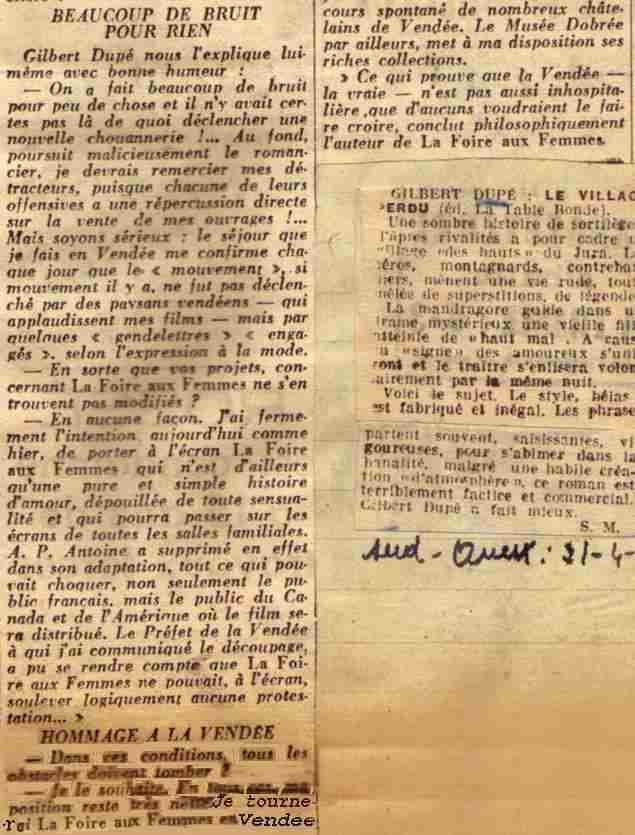 BEAUCOUP DE BRUIT
POUR RIEN
Gilbert Dupé nous l'explique lui-
même avec bonne humeur :
— On a fait beaucoup de bruit
pour peu de chose et il n'y avait cer-
tes pas là de quoi déclencher une
nouvelle chouannerie !... Au fond,
poursuit malicieusement le roman-
cier, je devrais remercier mes dé-
tracteurs, puisque chacune de leurs
offensives a une répercussion directe
sur la vente de mes ouvrages !...
Mais soyons sérieux : le séjour que
je fais en Vendée me confirme cha-
que jour que le « mouvement », si
mouvement il y a, ne fut pas déclen-
ché par des paysans vendéens — qui
applaudissent mes films — mais par
quelques « gendelettres » « enga-
gés », selon l'expression à la mode.
— En sorte que vos projets, con-
cernant La Foire aux Femmes ne s'en
trouvent pas modifiés ?
— En aucune façon. J'ai ferme-
ment l'intention, aujourd'hui comme
hier, de porter à l'écran La Foire
aux Femmes qui n'est d'ailleurs
qu'une pure et simple histoire
d'amour, dépouillée de toute sensua-
lité et qui pourra passer sur les
écrans de toutes les salles familiales.
A. P. Antoine a supprimé en effet
dans son adaptation, tout ce qui pou-
vait choquer, non seulement le pu-
blic français, mais le public du Ca-
nada et de l'Amérique où le film se-
ra distribué. Le Préfet de la Vendée
à qui j'ai communiqué le découpage,
a pu se rendre compte que La Foi-
re aux Femmes ne pouvait, à l'écran,
soulever logiquement aucune protes-
tation... »
HOMMAGE A LA VENDÉE
— Dans ces conditions, tous les
obstacles doivent tomber ?
— Je le souhaite. En tous cas, ma
position reste très nette. Je tourne-
rai La Foire aux Femmes en Vendee
cours spontané de nombreux châte-
lains de Vendée. Le Musée Dobrée
par ailleurs, met à ma disposition ses
riches collections.
» Ce qui prouve que la Vendée —
la vraie — n'est pas aussi inhospita-
lière que d'aucuns voudraient le fai-
re croire, conclut philosophiquement
l'auteur de La Foire aux Femmes.
GILBERT DUPÉ : LE VILLAG
PERDU (éd. La Table Ronde).
Une sombre histoire de sortilège
l'âpres rivalités a pour cadre u
village «des hauts» du Jura. L
héros, montagnards, contreba
iers, mènent une vie rude, tou
mêlée de superstitions, de légende
La mandragore guide dans u
drame mystérieux une vieille fill
atteinte de «haut mal». A caus
u «signe» des amoureux s'uni
ront et le traître s'enlisera volon
airement par la même nuit.
Voici le sujet. Le style, hélas
est fabriqué et inégal. Les phrase
partent souvent, saisissantes, vi
goureuses, pour s'abîmer dans la
banalité, malgré une habile créa-
tion «d'atmosphère», ce roman est
terriblement factice et commercial.
Gilbert Dupé a fait mieux.
S. M.
Sud-Ouest : 21-4-